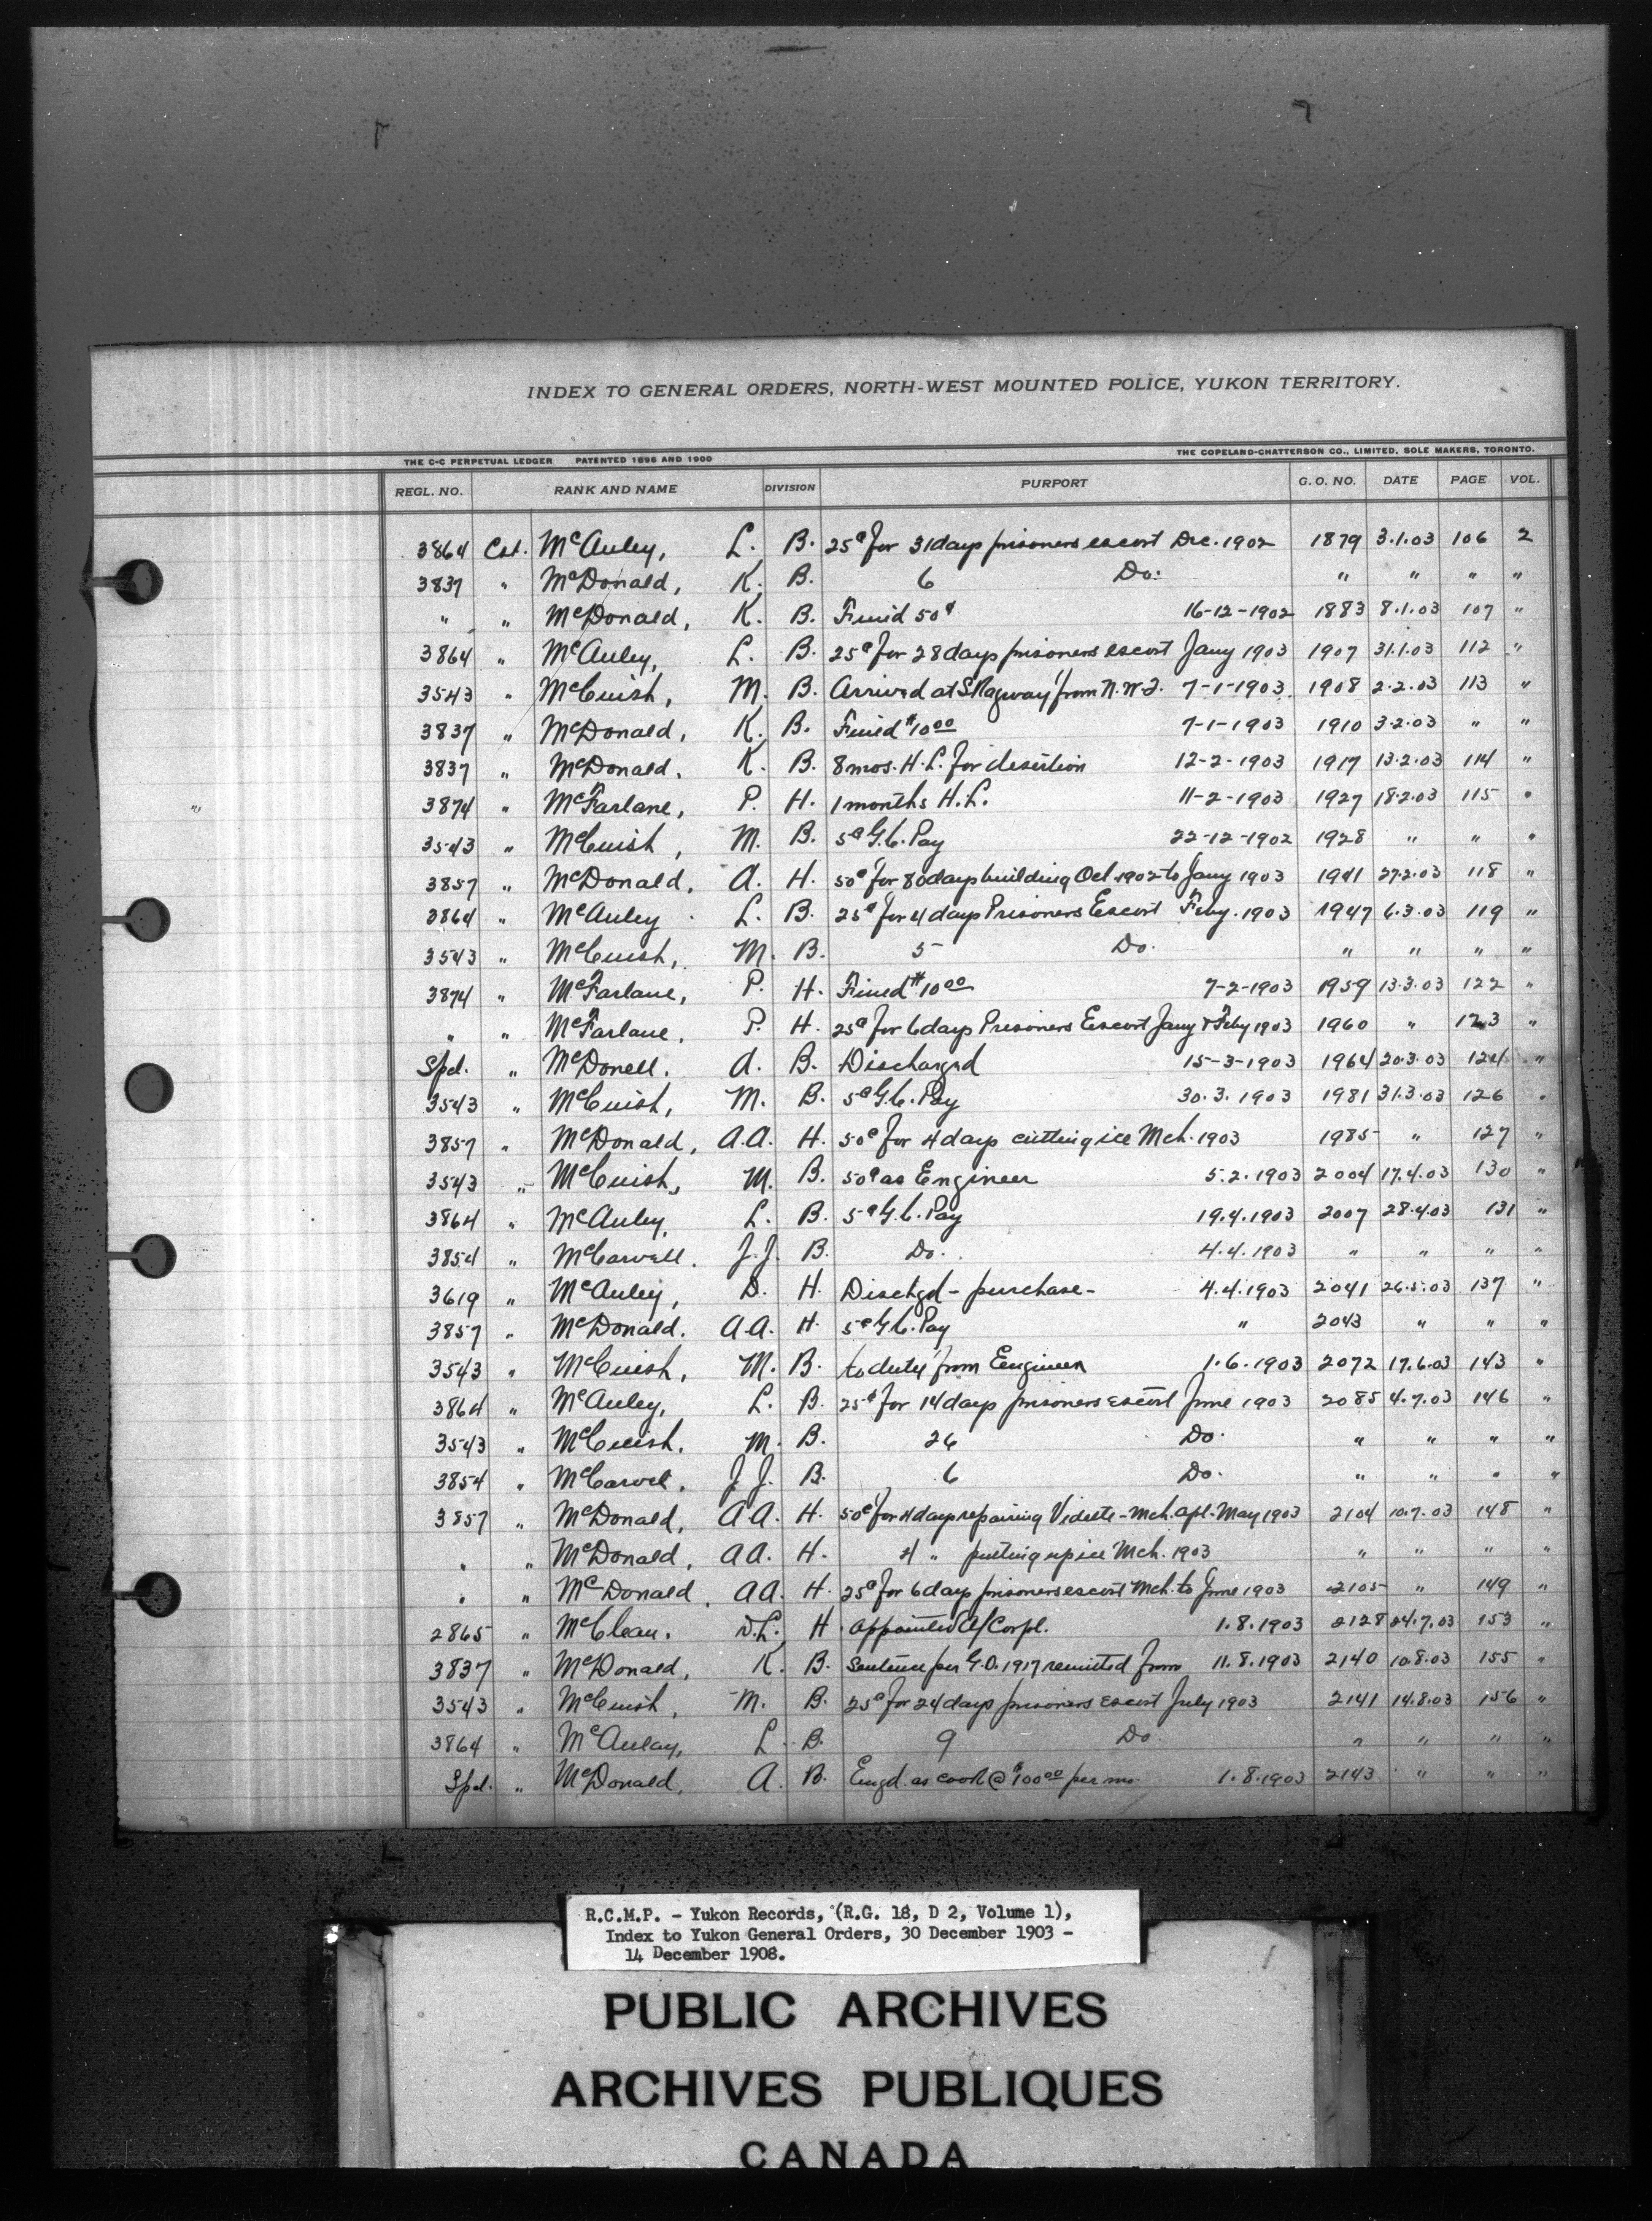 INDEX TO GENERAL ORDERS, NORTH-WEST MOUNTED POLICE, YUKON TERRITORY.
THE C-C PERPETUAL LEDGER PATENTED 1896 AND 1900 THE COPELAND-CHATTERSON CO., LIMITED, SOLE MAKERS, TORONTO.
REGL. NO. RANK AND NAME DIVISION PURPORT G. O. NO. DATE PAGE VOL.
3864 Cst. McAuley, L. B. 25¢ for 31 days prisoners escort Dec. 1902 1879 3.1.03 106 2
3837 " McDonald, K. B. 6 Do. " " " "
" " McDonald, K. B. Fined 50¢ 16-12-1902 1883 8.1.03 107 "
3864 " McAuley, L. B. 25¢ for 28 days prisoners escort Jany 1903 1907 31.1.03 112 "
3543 " McCuish, M. B. Arrived at Skagway from N.W.T. 7-1-1903 1908 2.2.03 113 "
3837 " McDonald, K. B. Fined $10 00 7-1-1903 1910 3.2.03 " "
3837 " McDonald, K. B. 8 mos. H.L. for desertion 12-2-1903 1917 13.2.03 114 "
3874 " McFarlane, P. H. 1 months H.L. 11-2-1903 1927 18.2.03 115 "
3543 " McCuish, M. B. 5¢ G.C. Pay 22-12-1902 1928 " " "
3857 " McDonald, A. H. 50¢ for 80 days building Oct 1902 to Jany 1903 1941 27.2.03 118 "
3864 " McAuley L. B. 25¢ for 4 days Prisoners Escort Feby. 1903 1947 6.3.03 119 "
3543 " McCuish, M. B. 5 Do. " " " "
3874 " McFarlane, P. H. Fined $10 00 7-2-1903 1959 13.3.03 122 "
" " McFarlane, P. H. 25¢ for 6 days Prisoners Escort Jany & Feby 1903 1960 " 123 "
Spl. " McDonell, A. B. Discharged 15-3-1903 1964 20.3.03 124 "
3543 " McCuish, M. B. 5¢ G.C. Pay 30.3.1903 1981 31.3.03 126 "
3857 " McDonald, A.A. H. 50¢ for 4 days cutting ice Mch. 1903 1985 " 127 "
3543 " McCuish, M. B. 50¢ as Engineer 5.2.1903 2004 17.4.03 130 "
3864 " McAuley, L. B. 5¢ G.C. Pay 19.4.1903 2007 28.4.03 131 "
3854 " McCarvell. J.J. B. Do. 4.4.1903 " " " "
3619 " McAuley, D. H. Dischgd - purchase - 4.4.1903 2041 26.5.03 137 "
3857 " McDonald. A.A. H. 5¢ G.C. Pay " 2043 " " "
3543 " McCuish, M. B. to duty from Engineer 1.6.1903 2072 17.6.03 143 "
3864 " McAuley, L. B. 25¢ for 14 days prisoners escort June 1903 2085 4.7.03 146 "
3543 " McCuish. M. B. 26 Do. " " " "
3854 " McCarvel, J.J. B. 6 Do. " " " "
3857 " McDonald, A.A. H. 50¢ for 4 days repairing Vidette - Mch. Apl. May 1903 2104 10.7.03 148 "
" " McDonald, A.A. H. 4 " putting up ice Mch. 1903 " " " "
" " McDonald, A.A. H. 25¢ for 6 days prisoners escort Mch. to June 1903 2105 " 149 "
2865 " McClean. D.L. H. Appointed A/Corpl. 1.8.1903 2128 24.7.03 153 "
3837 " McDonald, K. B. Sentence per G.O. 1917 remitted from 11.8.1903 2140 10.8.03 155 "
3543 " McCuish, M. B. 25¢ for 24 days prisoners escort July 1903 2141 14.8.03 156 "
3864 " McAulay, L. B. 9 Do. " " " "
Spl. " McDonald, A. B. Engd. as cook @ $100 00 per mo. 1.8.1903 2143 " " "
R.C.M.P. - Yukon Records, (R.G. 18, D 2, Volume 1),
Index to Yukon General Orders, 30 December 1903 -
14 December 1908.
PUBLIC ARCHIVES
ARCHIVES PUBLIQUES
CANADA